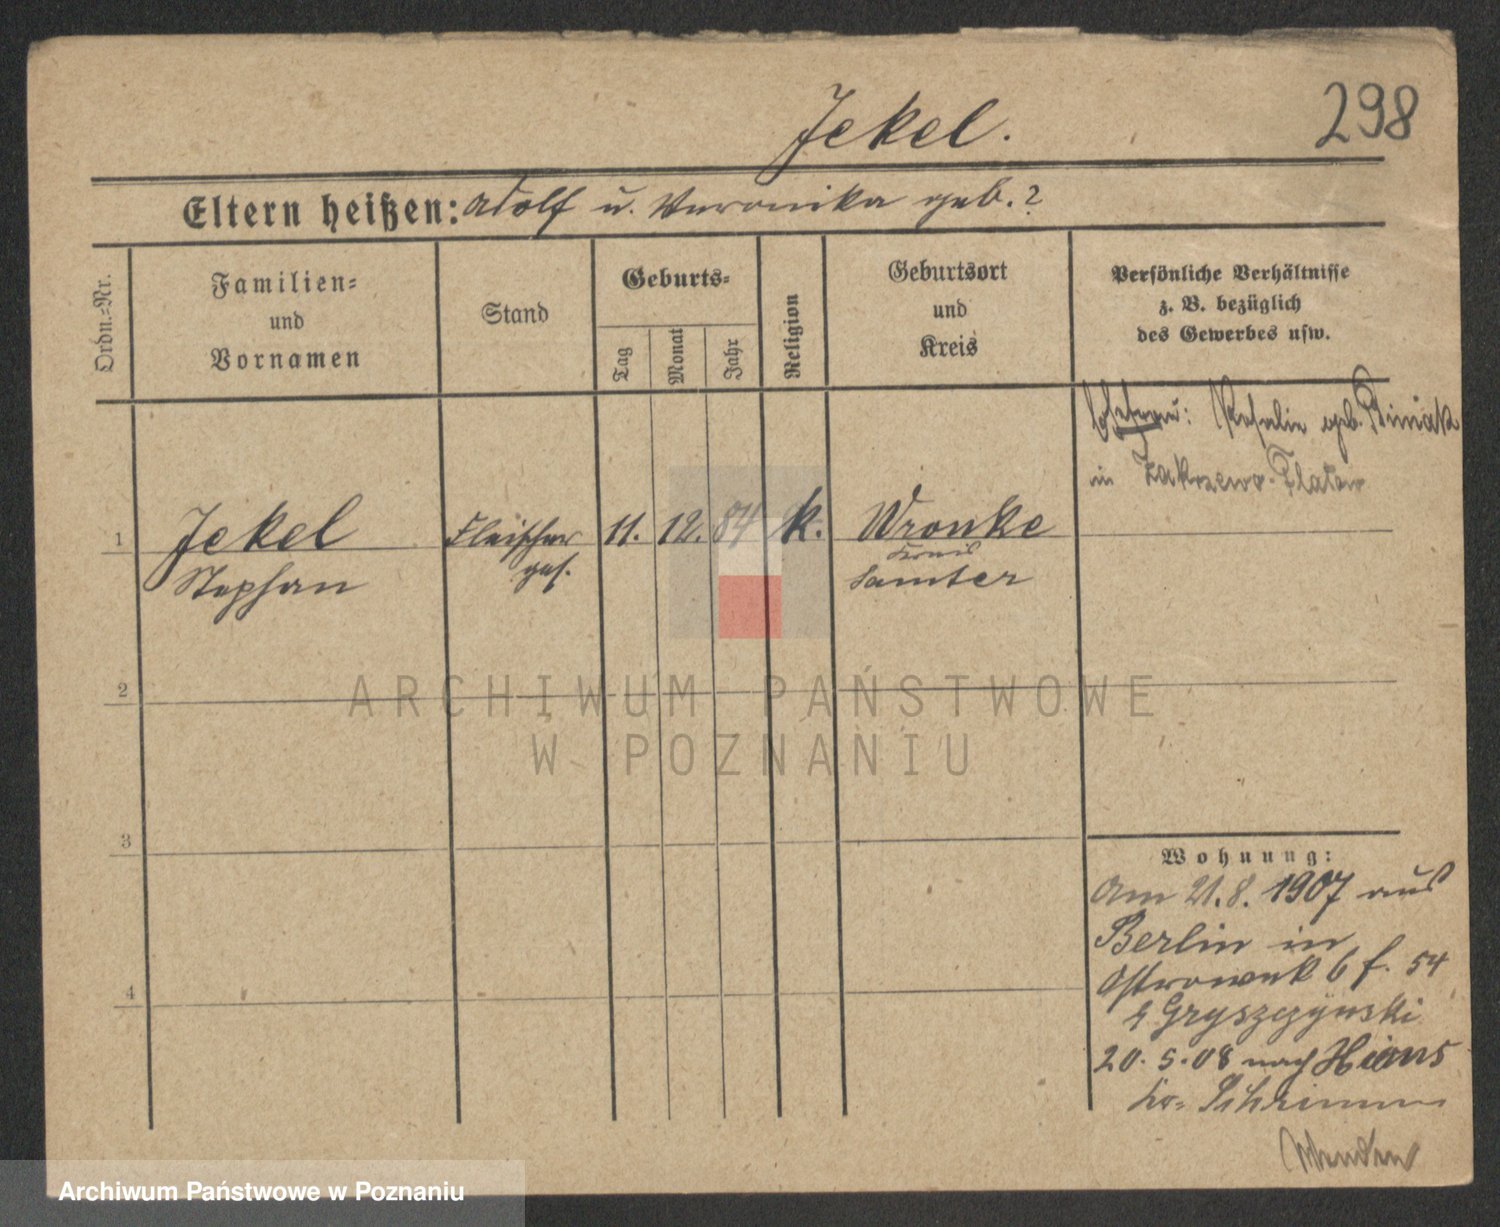 298
Jekel.
Eltern heißen: Adolf u. Veronika geb. ?
Ordn.-Nr.
Familien-
und
Vornamen
Stand
Geburts-
Tag
Monat
Jahr
Religion
Geburtsort
und
Kreis
Persönliche Verhältnisse
z. B. bezüglich
des Gewerbes usw.
Ehefrau: Rosalie geb.
in Zakrzewo-Flatow
1
Jekel
Stephan
Fleischer
ges.
11.
12.
84
k.
Wronke
Kreis
Samter
2
3
4
Wohnung:
Am 21.8.1907 aus
Berlin in
Ostrowek 6 f. 54
Gryszczynski
20.5.08 nach
Kr. Schrimm
ARCHIWUM PAŃSTWOWE
W POZNANIU
Archiwum Państwowe w Poznaniu